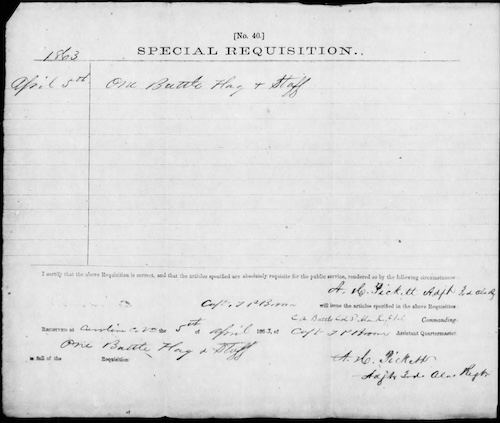 [No. 40.]
SPECIAL REQUISITION.
1863
April 5th One Battle Flag & Staff
I certify that the above Requisition is correct, and that the articles specified are absolutely requisite for the public service, rendered so by the following circumstances:
A. C. Pickett Adjt
Capt.
will issue the articles specified in the above Requisition.
C. A. Battle Col 3d Commanding.
Received at the 5th of April 1863, of Capt Assistant Quartermaster.
One Battle Flag & Staff
in full of the Requisition.
A. C. Pickett
Adjt 3rd Ala Regt